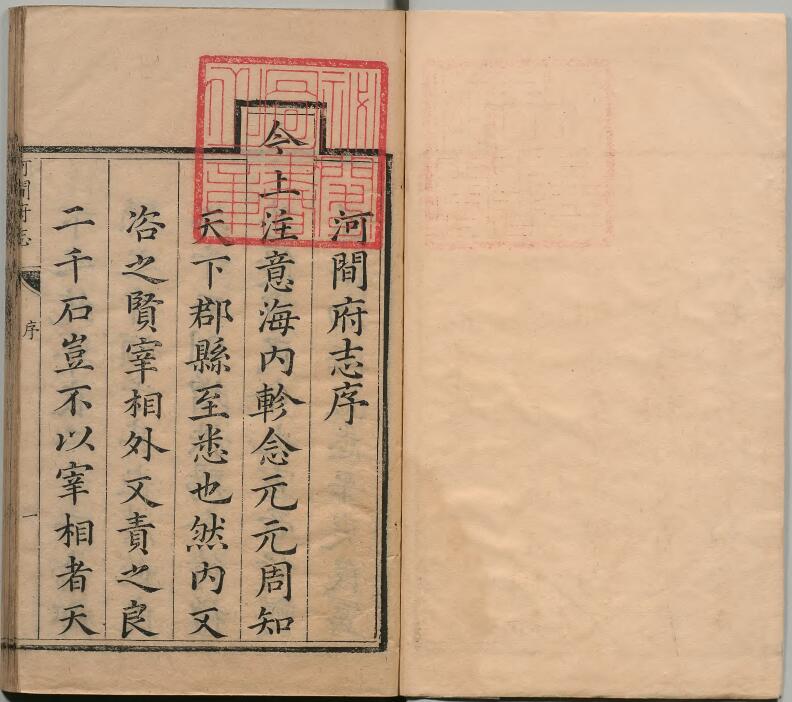 河間府志序
今上注意海內軫念元元周知
天下郡縣至悉也然内又
咨之賢宰相外又責之良
二千石豈不以宰相者天
河間府志
序
一